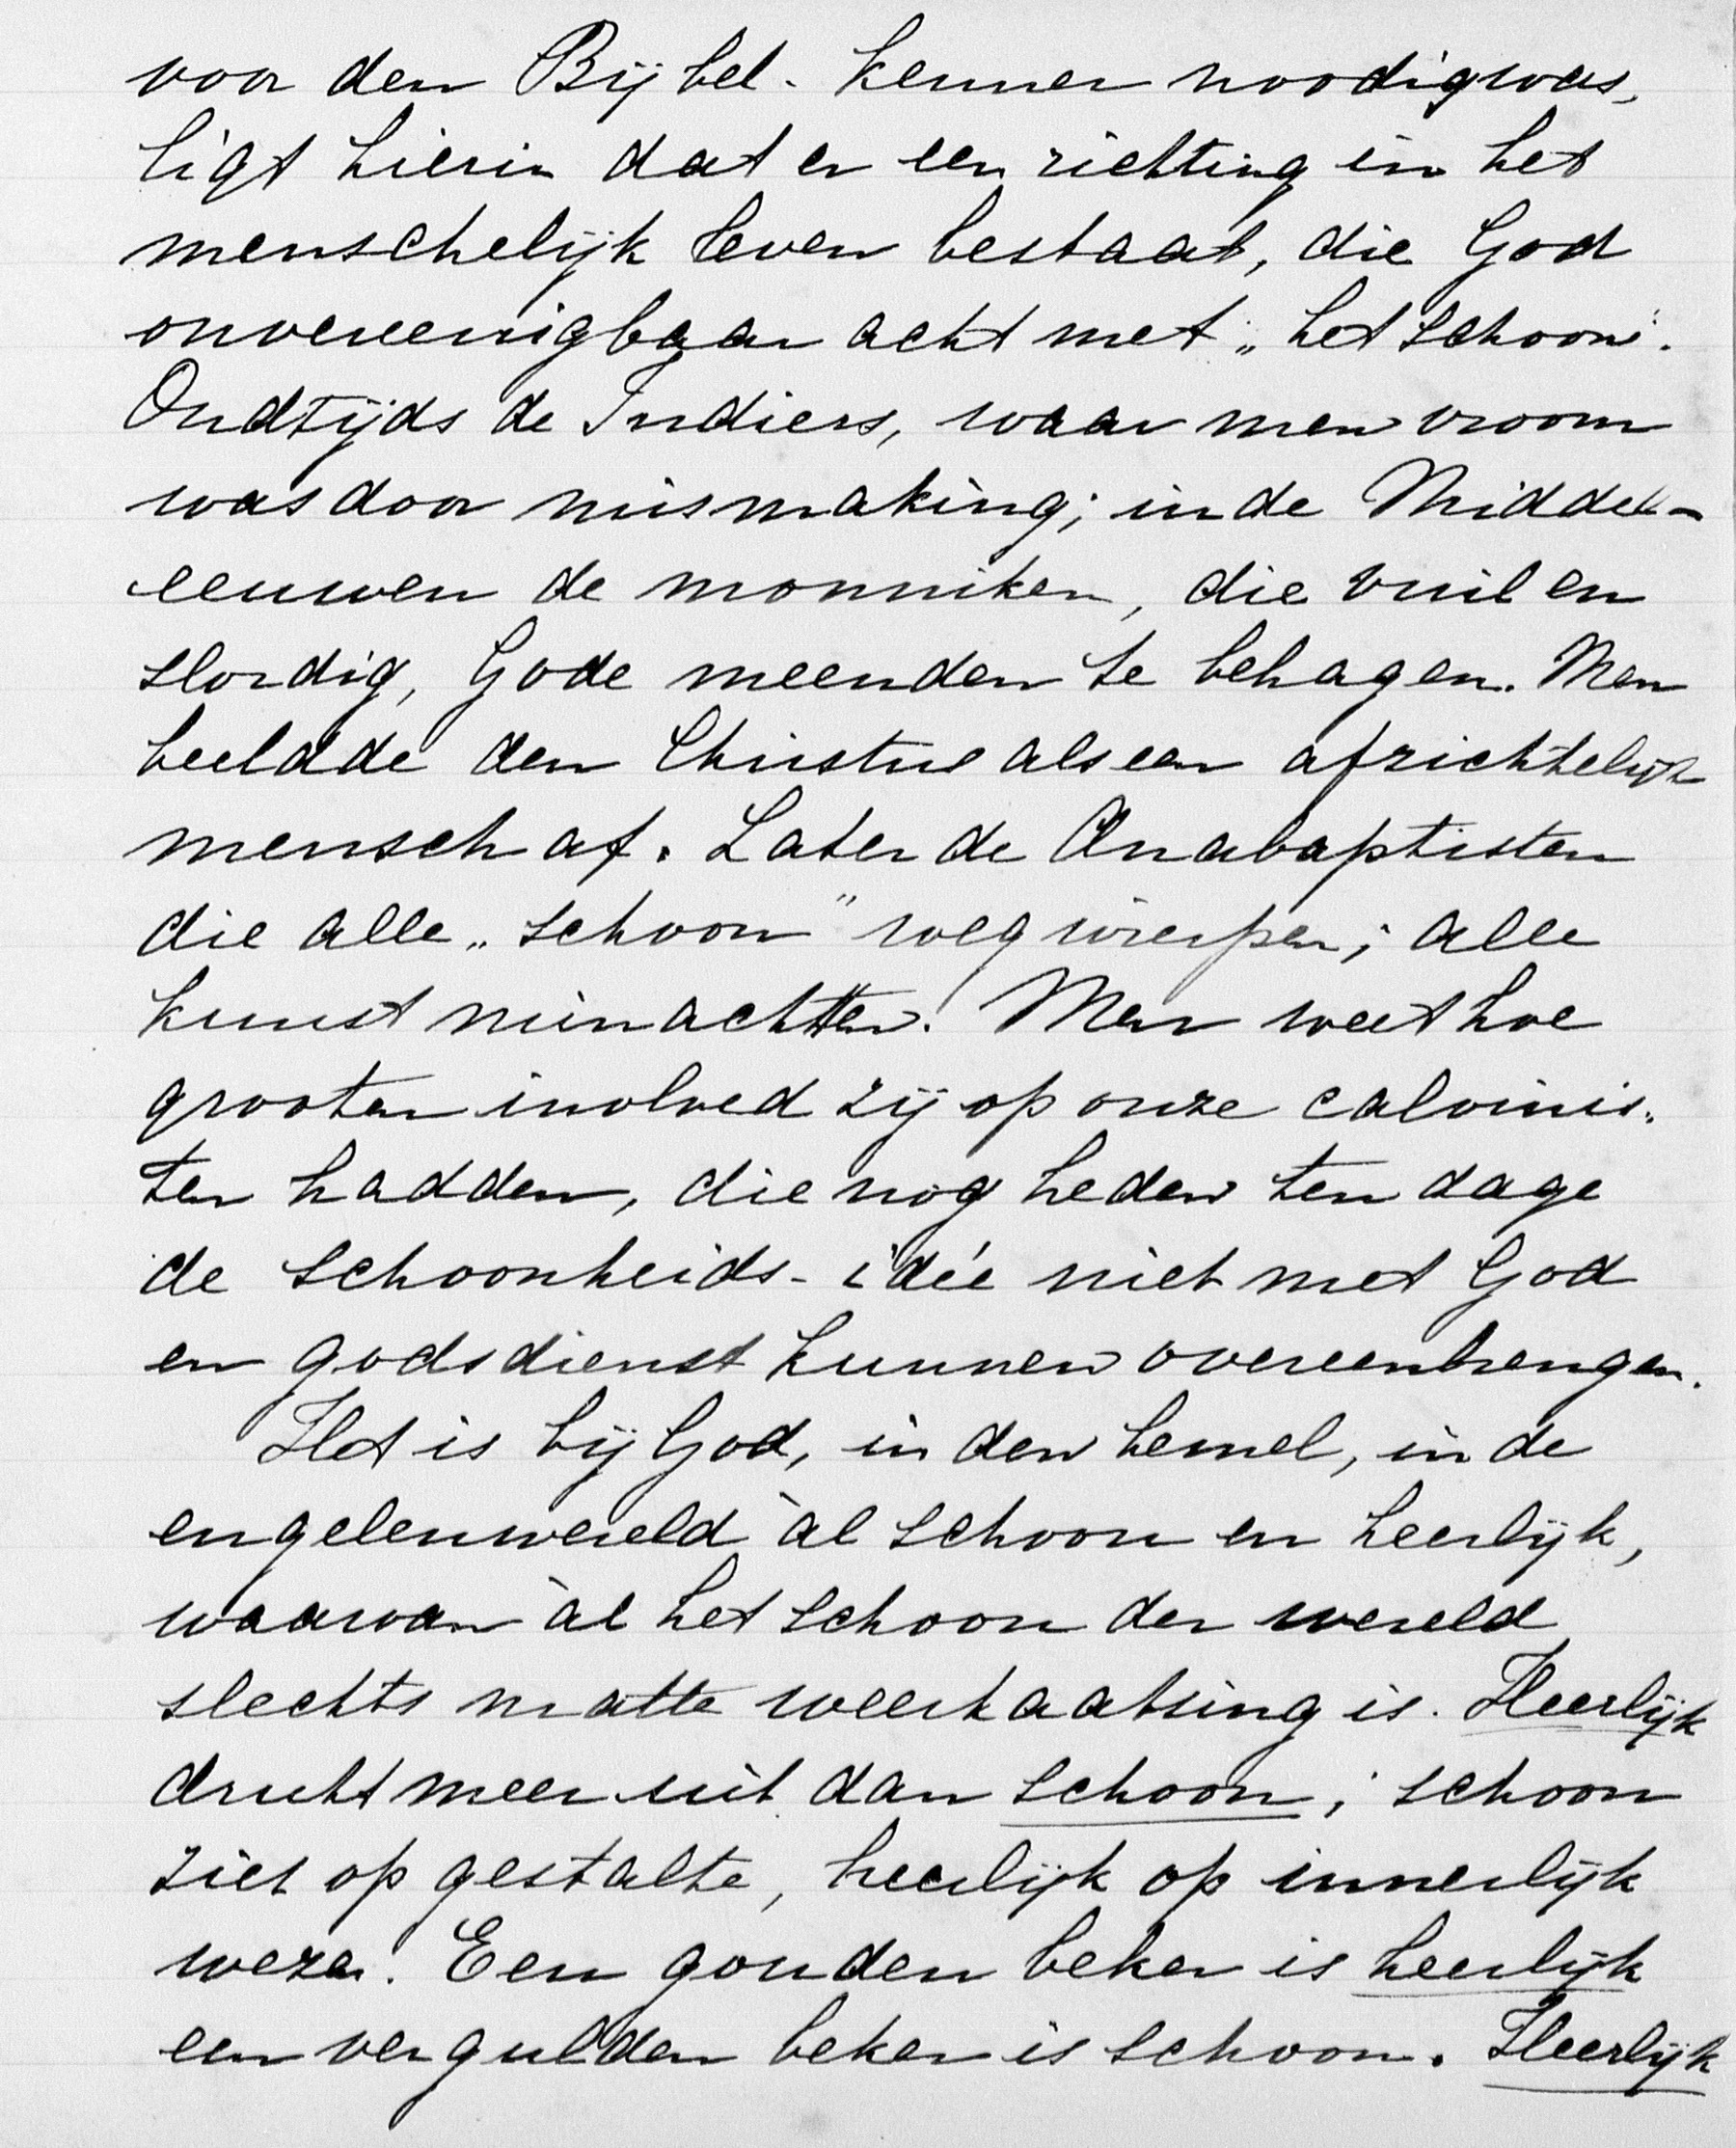 voor den Bijbel-kenner noodig was,
ligt hierin dat er een richting in het
menschelijk leven bestaat, die God
onvereenigbaar acht met „het schoon".
Oudtijds de Indiers, waar men vroom
was door mismaking; in de Middel-
eeuwen de monniken, die vuil en
slordig, Gode meenden te behagen. Men
beeldde den Christus als een afzichtelijk
mensch af. Later de Anabaptisten
die alle „schoon" wegwierpen; alle
kunst minachtten. Men weet hoe
grooten invloed zij op onze calvinis-
ten hadden, die nog heden ten dage
de schoonheids-idée niet met God
en godsdienst kunnen overeenbrengen.
Het is bij God, in den hemel, in de
engelenwereld àl schoon en heerlijk,
waarvan àl het schoon der wereld
slechts matte weerkaatsing is. Heerlijk
drukt meer uit dan schoon; schoon
ziet op gestalte, heerlijk op innerlijk
wezen. Een gouden beker is heerlijk
een vergulden beker is schoon. Heerlijk